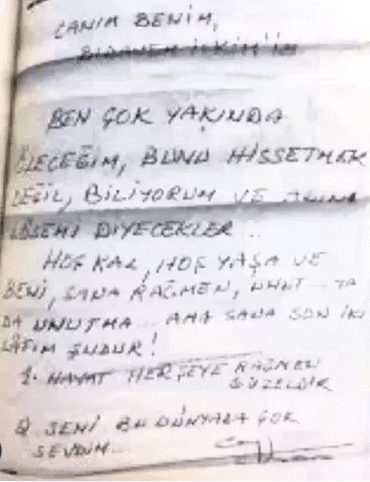 CANIM BENİM,
BİDANEM İLKİM'İM
BEN ÇOK YAKINDA
ÖLECEĞİM, BUNU HİSSETMEK
DEĞİL, BİLİYORUM VE
DİYECEKLER...
HOŞ KAL, HOŞ YAŞA VE
BENİ, SANA RAĞMEN, UNUT... YA
DA UNUTMA... AMA SANA SON İKİ
LAFIM ŞUDUR!
1. HAYAT HERŞEYE RAĞMEN
GÜZELDİR
2. SENİ BU DÜNYADA ÇOK
SEVDİM...